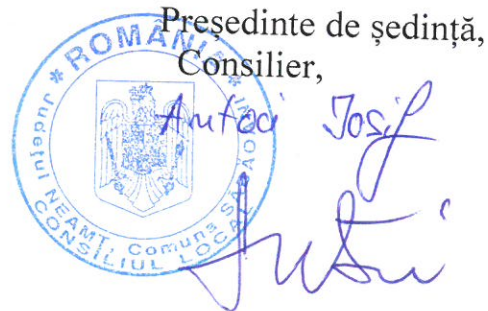 Președinte de ședință,
Consilier,
Antoci Iosif
* ROMÂNIA *
Județul NEAMȚ, Comuna
CONSILIUL LOCAL